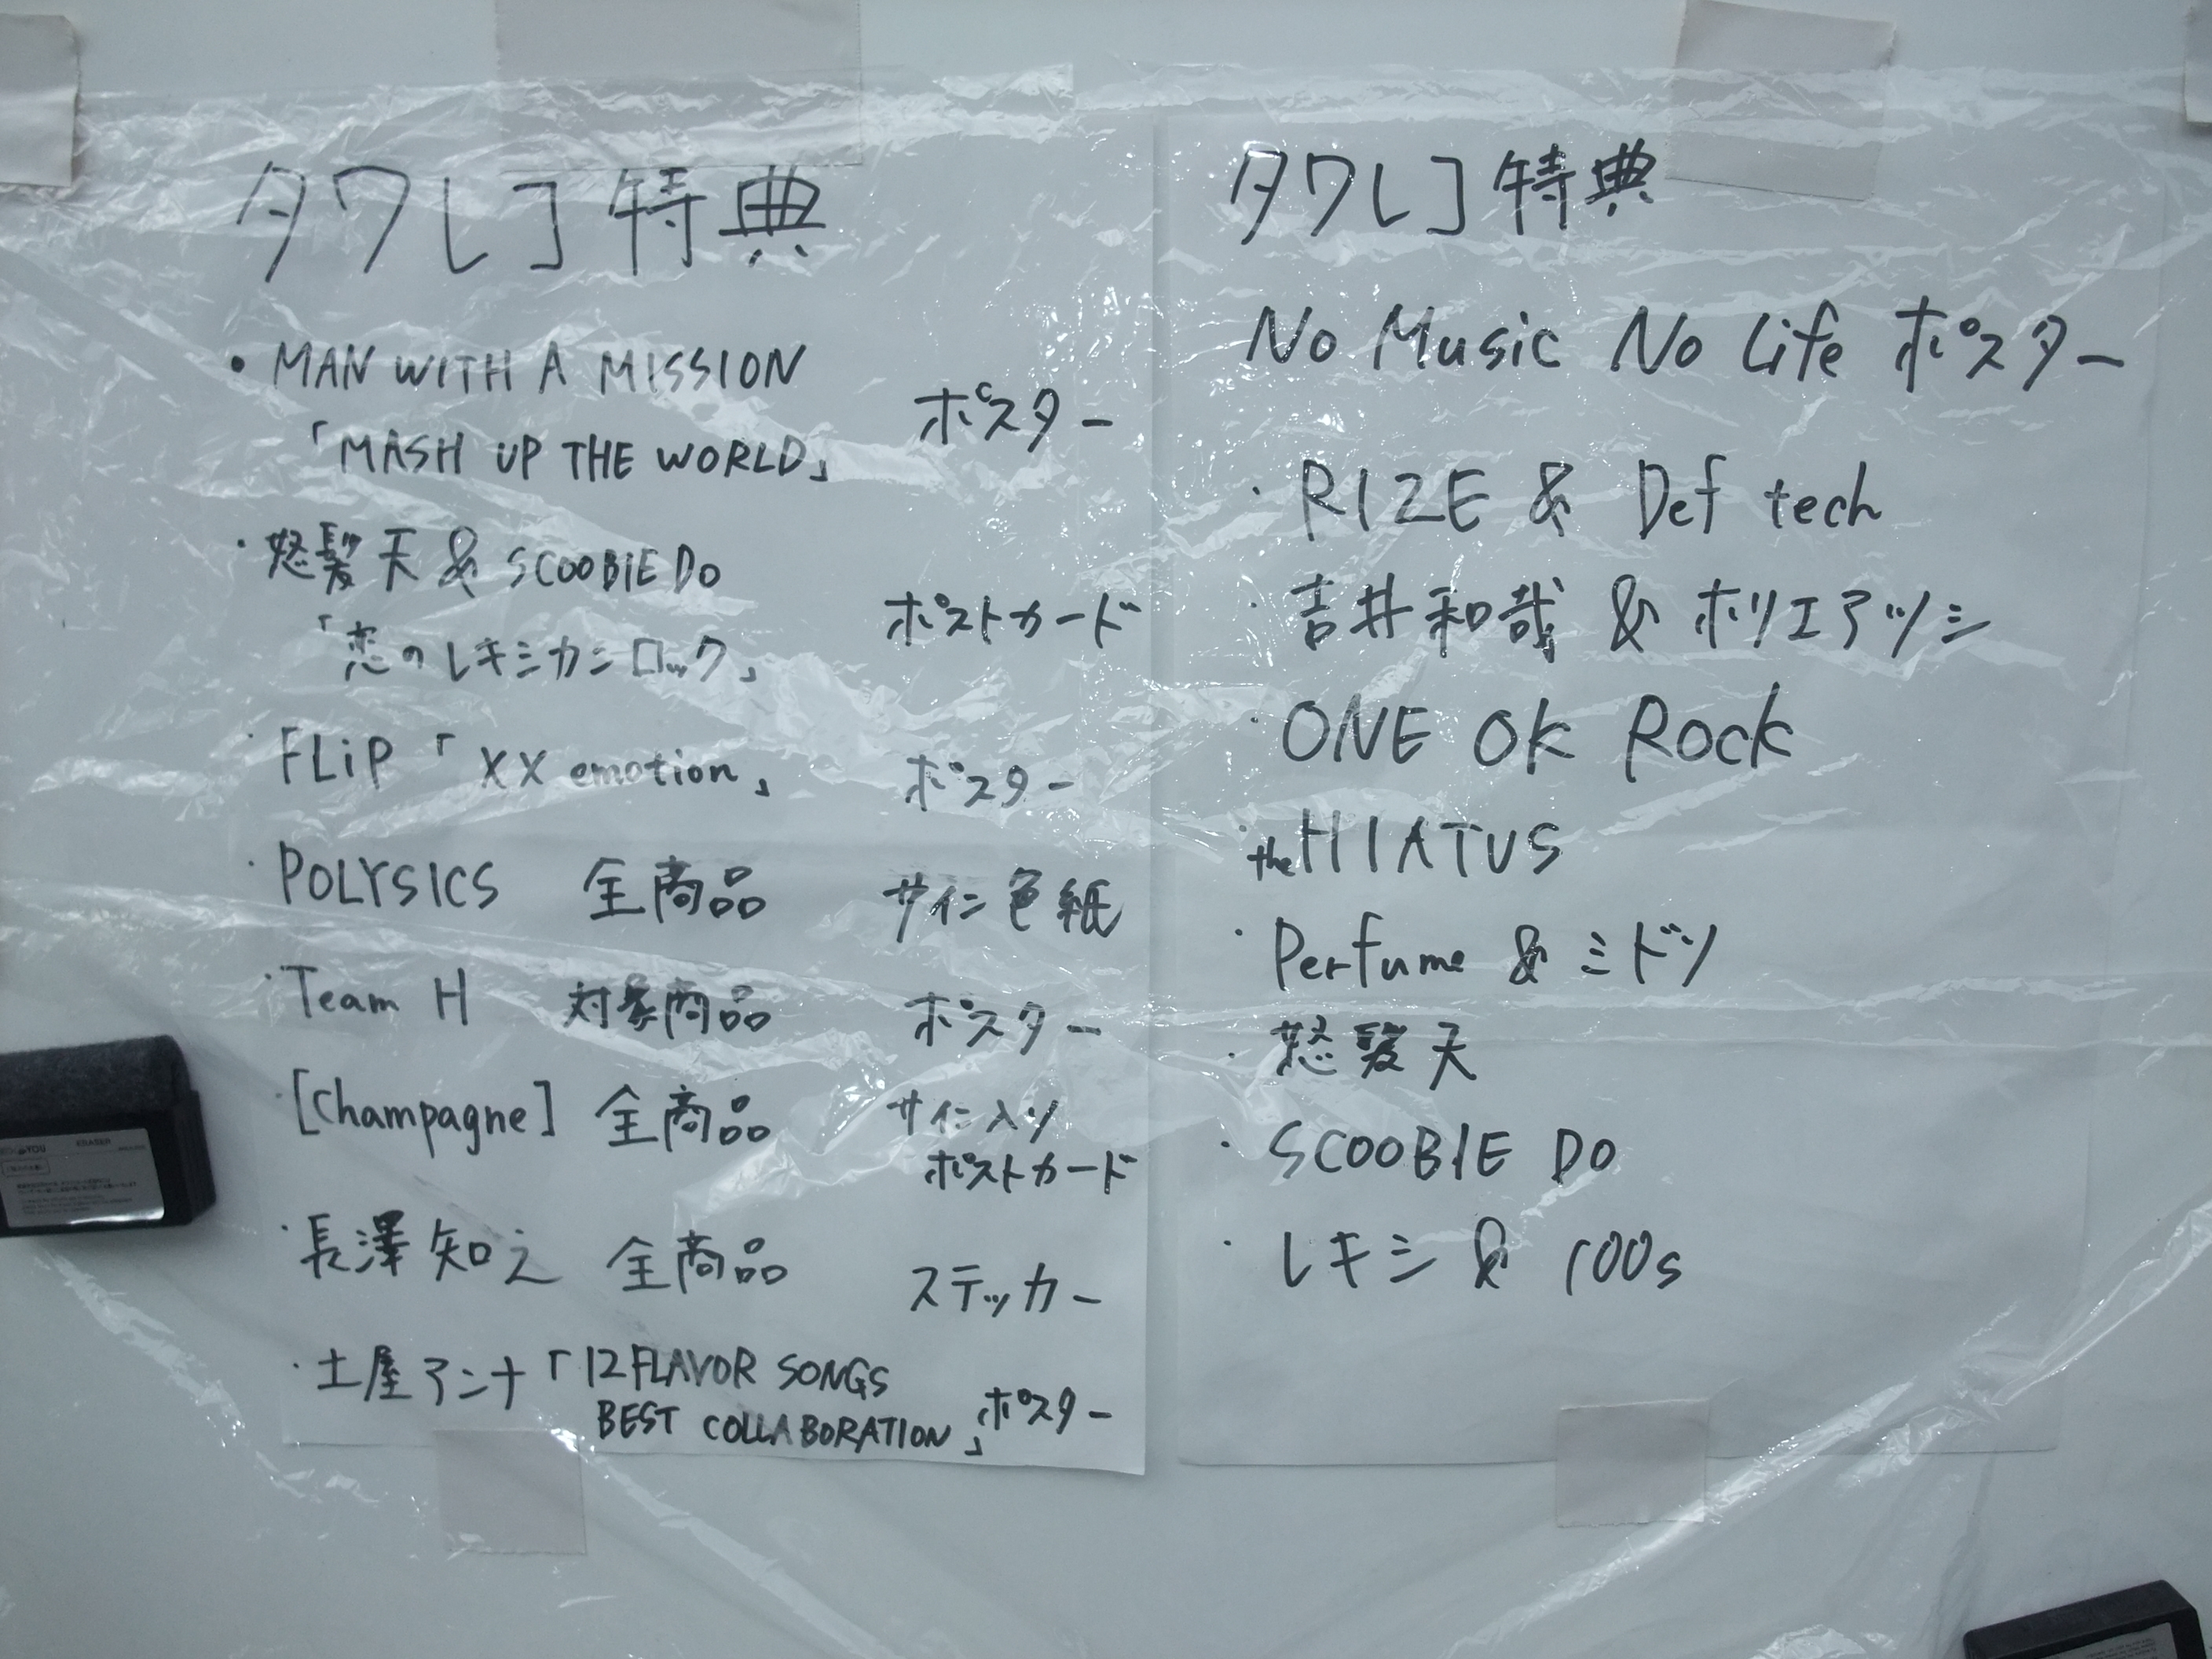 タワレコ特典
・MAN WITH A MISSION
「MASH UP THE WORLD」
ポスター
・怒髪天 & SCOOBIE DO
「恋のレキシカンロック」
ポストカード
・FLiP「XX emotion」 ポスター
・POLYSICS 全商品 サイン色紙
・Team H 対象商品 ポスター
・[Champagne] 全商品 サイン入り
ポストカード
・長澤知之 全商品 ステッカー
・土屋アンナ「12 FLAVOR SONGS
BEST COLLABORATION」ポスター
タワレコ特典
No Music No Life ポスター
・RIZE & Def tech
・吉井和哉 & ホリエアツシ
・ONE OK ROCK
・the HIATUS
・Perfume & ミドリ
・怒髪天
・SCOOBIE DO
・レキシ & 100s
ERASER